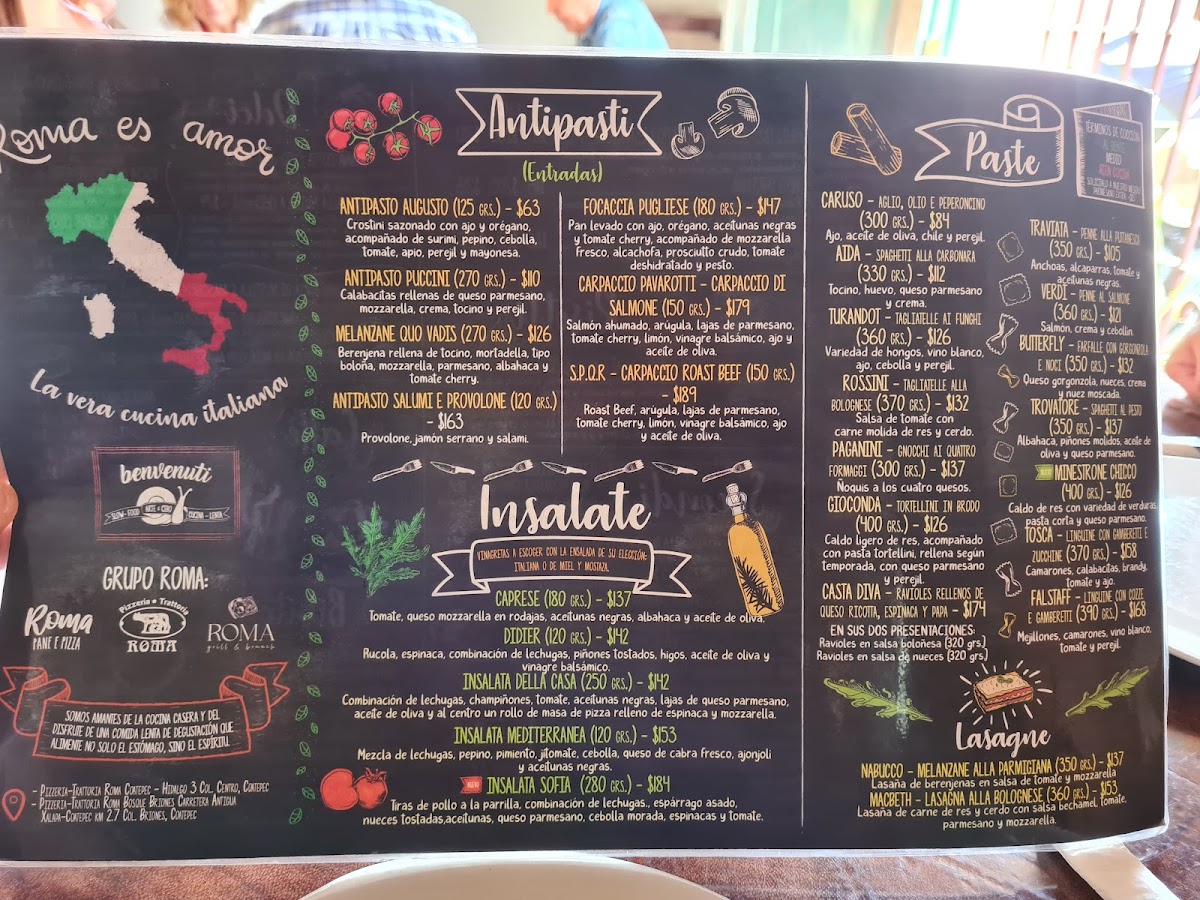 Roma es amor
La vera cucina italiana
benvenuti
SLOW-FOOD
CUCINA - LENTA
GRUPO ROMA:
Roma
PANE E PIZZA
Pizzeria Trattoria
ROMA
ROMA
grill & brunch
SOMOS AMANTES DE LA COCINA CASERA Y DEL
DISFRUTE DE UNA COMIDA LENTA DE DEGUSTACIÓN QUE
ALIMENTE NO SOLO EL ESTÓMAGO, SINO EL ESPÍRITU.
- PIZZERIA-TRATTORIA ROMA COATEPEC - HIDALGO 3 COL. CENTRO, COATEPEC
- PIZZERIA-TRATTORIA ROMA BOSQUE BRIONES CARRETERA ANTIGUA
XALAPA-COATEPEC KM 2.7 COL. BRIONES, COATEPEC
Antipasti
(Entradas)
ANTIPASTO AUGUSTO (125 GRS.) - $63
Crostini sazonado con ajo y orégano,
acompañado de surimi, pepino, cebolla,
tomate, apio, perejil y mayonesa.
ANTIPASTO PUCCINI (270 GRS.) - $110
Calabacitas rellenas de queso parmesano,
mozzarella, crema, tocino y perejil.
MELANZANE QUO VADIS (270 GRS.) - $126
Berenjena rellena de tocino, mortadella, tipo
boloña, mozzarella, parmesano, albahaca y
tomate cherry.
ANTIPASTO SALUMI E PROVOLONE (120 GRS.)
- $163
Provolone, jamón serrano y salami.
FOCACCIA PUGLIESE (180 GRS.) - $147
Pan levado con ajo, orégano, aceitunas negras
y tomate cherry, acompañado de mozzarella
fresco, alcachofa, prosciutto crudo, tomate
deshidratado y pesto.
CARPACCIO PAVAROTTI - CARPACCIO DI
SALMONE (150 GRS.) - $179
Salmón ahumado, arúgula, lajas de parmesano,
tomate cherry, limón, vinagre balsámico, ajo y
aceite de oliva.
S.P.Q.R - CARPACCIO ROAST BEEF (150 GRS.)
- $189
Roast Beef, arúgula, lajas de parmesano,
tomate cherry, limón, vinagre balsámico, ajo
y aceite de oliva.
Insalate
VINAGRETAS A ESCOGER CON LA ENSALADA DE SU ELECCIÓN:
ITALIANA O DE MIEL Y MOSTAZA.
CAPRESE (180 GRS.) - $137
Tomate, queso mozzarella en rodajas, aceitunas negras, albahaca y aceite de oliva.
DIDIER (120 GRS.) - $142
Rucola, espinaca, combinación de lechugas, piñones tostados, higos, aceite de oliva y
vinagre balsámico.
INSALATA DELLA CASA (250 GRS.) - $142
Combinación de lechugas, champiñones, tomate, aceitunas negras, lajas de queso parmesano,
aceite de oliva y al centro un rollo de masa de pizza relleno de espinaca y mozzarella.
INSALATA MEDITERRANEA (120 GRS.) - $153
Mezcla de lechugas, pepino, pimiento, jitomate, cebolla, queso de cabra fresco, ajonjolí
y aceitunas negras.
NUEVO INSALATA SOFIA (280 GRS.) - $184
Tiras de pollo a la parrilla, combinación de lechugas., espárrago asado,
nueces tostadas,aceitunas, queso parmesano, cebolla morada, espinacas y tomate.
Paste
TÉRMINOS DE COCCIÓN
AL DENTE
MEDIO
CARUSO - AGLIO, OLIO E PEPERONCINO
(300 GRS.) - $84
Ajo, aceite de oliva, chile y perejil.
AIDA - SPAGHETTI ALLA CARBONARA
(330 GRS.) - $112
Tocino, huevo, queso parmesano
y crema.
TURANDOT - TAGLIATELLE AI FUNGHI
(360 GRS.) - $126
Variedad de hongos, vino blanco,
ajo, cebolla y perejil.
ROSSINI - TAGLIATELLE ALLA
BOLOGNESE (370 GRS.) - $132
Salsa de tomate con
carne molida de res y cerdo.
PAGANINI - GNOCCHI AI QUATRO
FORMAGGI (300 GRS.) - $137
Ñoquis a los cuatro quesos.
GIOCONDA - TORTELLINI IN BRODO
(400 GRS.) - $126
Caldo ligero de res, acompañado
con pasta tortellini, rellena según
temporada, con queso parmesano
y perejil.
CASTA DIVA - RAVIOLES RELLENOS DE
QUESO RICOTTA, ESPINACA Y PAPA - $174
EN SUS DOS PRESENTACIONES:
Ravioles en salsa boloñesa (320 grs.)
Ravioles en salsa de nueces (320 grs.)
TRAVIATA - PENNE ALLA PUTTANESCA
(350 GRS.) - $105
Anchoas, alcaparras, tomate y
aceitunas negras.
VERDI - PENNE AL SALMONE
(360 GRS.) - $121
Salmón, crema y cebollín.
BUTTERFLY - FARFALLE CON GORGONZOLA
E NOCI (350 GRS.) - $132
Queso gorgonzola, nueces, crema
y nuez moscada.
TROVATORE - SPAGHETTI AL PESTO
(350 GRS.) - $137
Albahaca, piñones molidos, aceite de
oliva y queso parmesano.
NUEVO MINESTRONE CHICCO
(400 GRS.) - $126
Caldo de res con variedad de verduras,
pasta corta y queso parmesano.
TOSCA - LINGUINE CON GAMBERETI E
ZUCCHINE (370 GRS.) - $158
Camarones, calabacitas, brandy,
tomate y ajo.
FALSTAFF - LINGUINE CON COZZE
E GAMBERETTI (390 GRS.) - $168
Mejillones, camarones, vino blanco,
tomate y perejil.
Lasagne
NABUCCO - MELANZANE ALLA PARMIGIANA (350 GRS.) - $137
Lasaña de berenjenas en salsa de tomate y mozzarella
MACBETH - LASAGNA ALLA BOLOGNESE (360 GRS.) - $153
Lasaña de carne de res y cerdo con salsa bechamel, tomate,
parmesano y mozzarella.